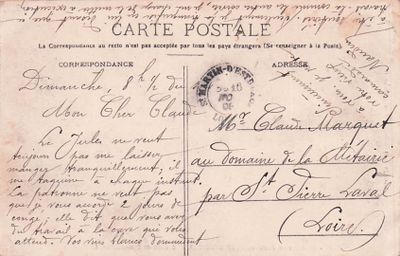 CARTE POSTALE
La Correspondance au recto n'est pas acceptée par tous les pays étrangers (Se renseigner à la Poste)
CORRESPONDANCE
ADRESSE
Dimanche, 8 h ½ du
Mon Cher Claude
Le Jules ne veut
toujours pas me laisser
manger tranquillement, il
me taquine à chaque instant.
La patronne ne veut pas
que je vous accorde 2 jours de
congé; elle dit que vous avez
du travail à la cave que vous
attend. Vos vins blancs demandent
ST MARTIN-D'ESTREAUX
Mr Claude Marquet
au Domaine de la Métairie
par St Pierre Laval
(Loire)